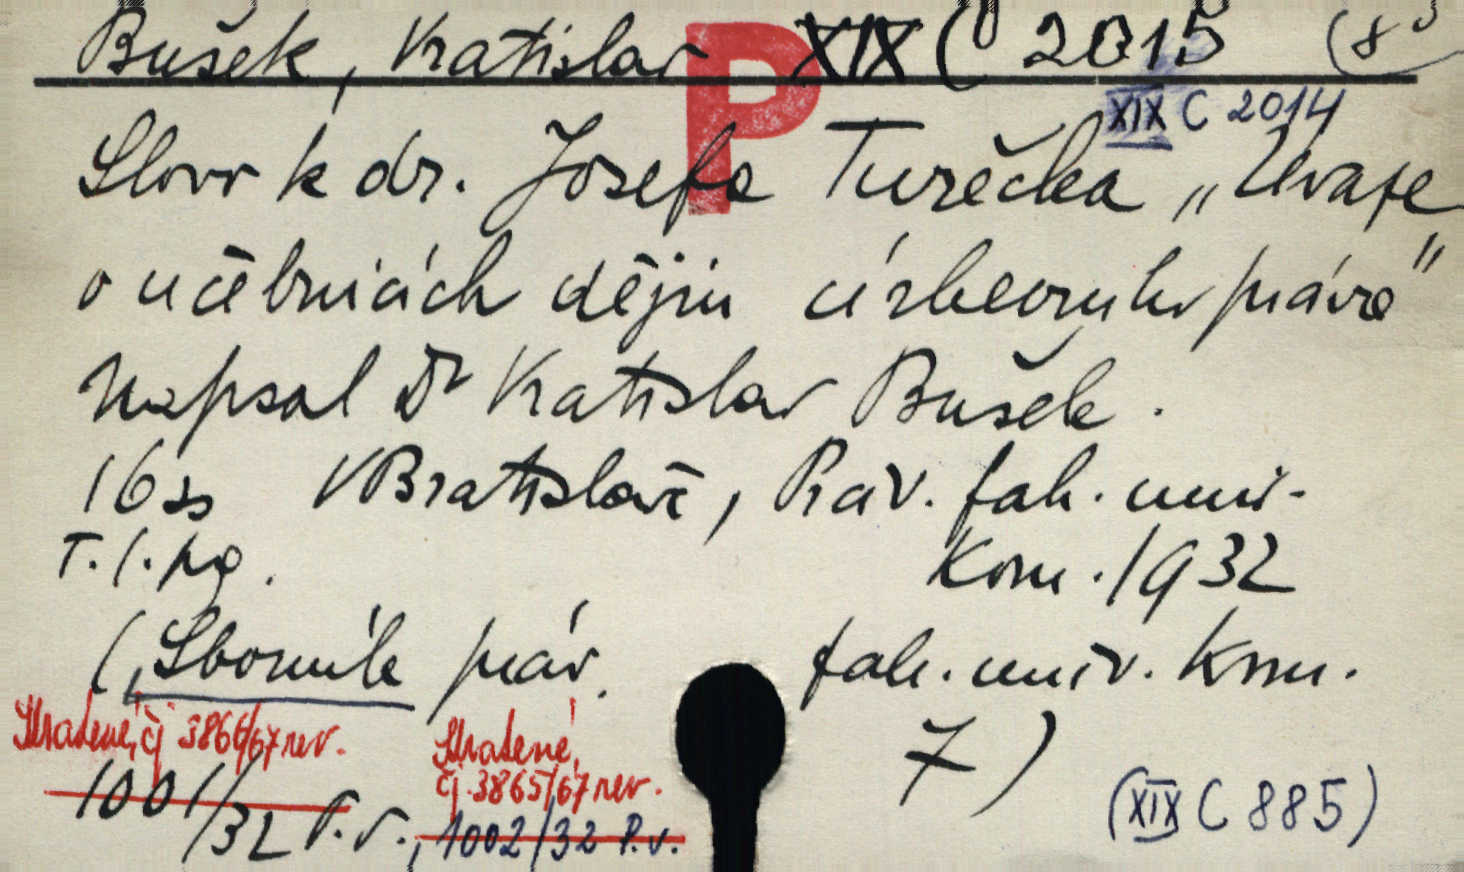 Bušek, Vratislav XIX C 2015 (8°
XIX C 2014
P
Slovo k dr. Josefa Turečka „Úvaze
o učebnicích dějin církevnyho práva"
Napsal Dr Vratislav Bušek.
16 ss V Bratislavě, Práv. fak. univ.
T. l. pg. Kom. 1932
(Sborník práv. fak. univ. Kom.
7)
Stratené, čj 3866/67 rev.
Stratené,
čj. 3865/67 rev.
1001/32 P.v., 1002/32 P.v.
(XIX C 885)